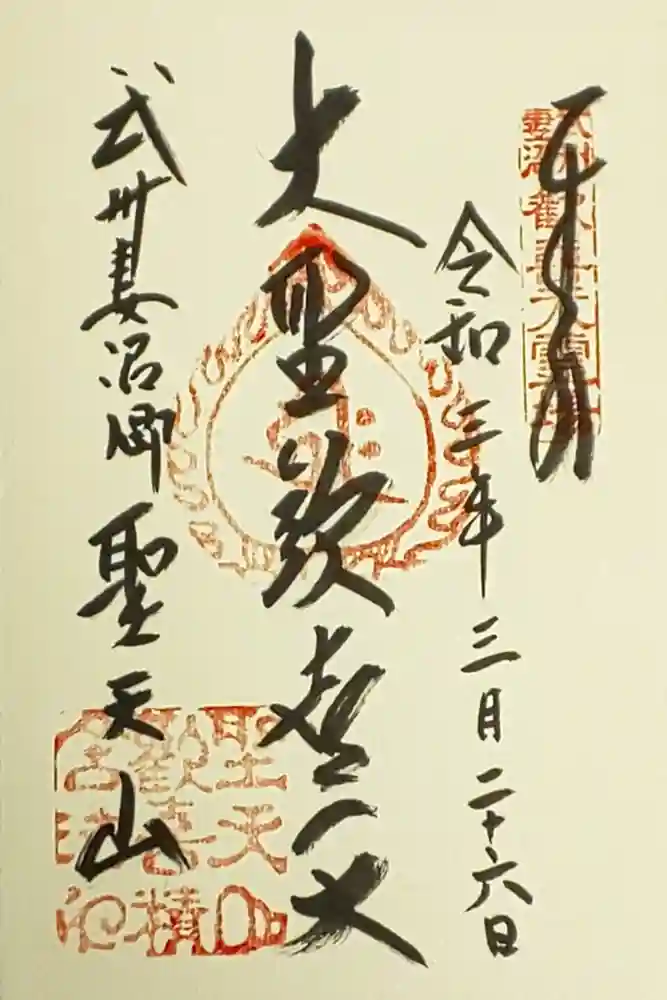 奉拝
令和三年三月二十六日
大聖歓喜天
武州妻沼郷
聖天山
聖天山
歓喜